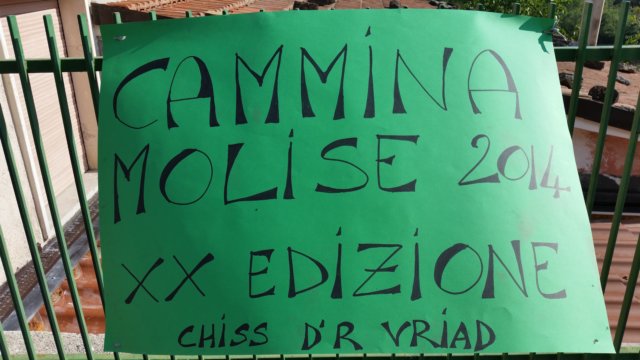 CAMMINA
MOLISE 2014
XX EDIZIONE
CHISS D'R VRIAD